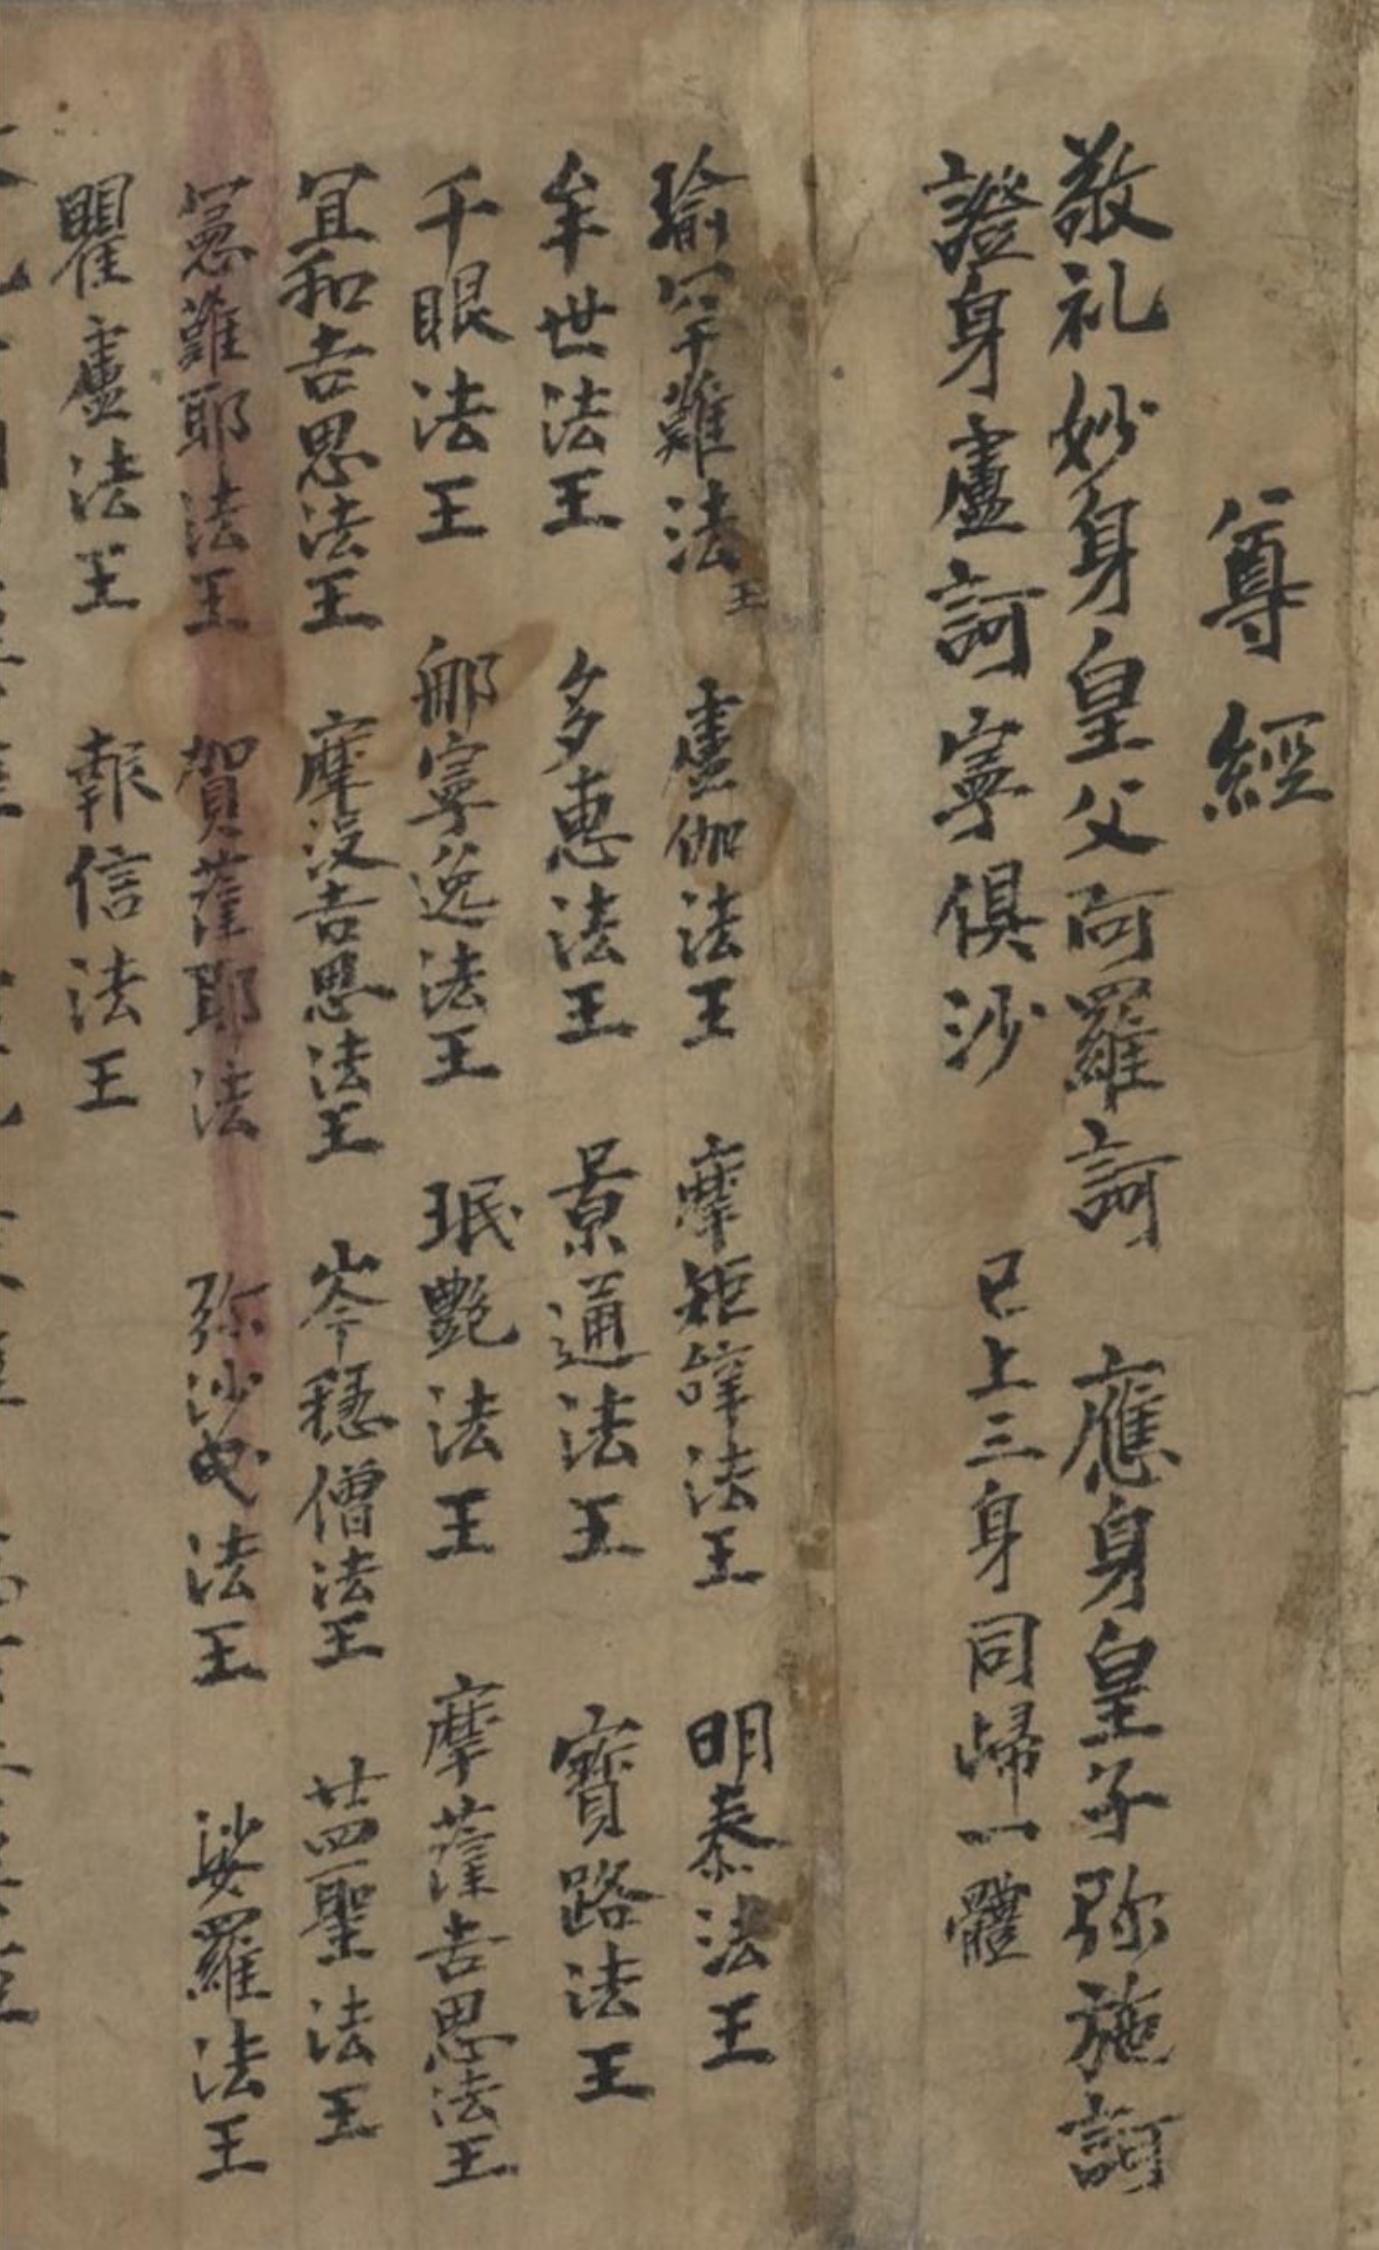 尊經
敬礼妙身皇父阿羅訶 應身皇子弥施訶
證身盧訶寧俱沙 已上三身同歸一體
瑜罕難法王 盧伽法王 摩矩辭法王 明泰法王
牟世法王 多惠法王 景通法王 寶路法王
千眼法王 那寧逸法王 珉艶法王 摩薩吉思法王
宜和吉思法王 摩没吉思法王 岑穩僧法王 廿四聖法王
憲難耶法王 賀薩耶法 弥沙曳法王 娑羅法王
瞿盧法王 報信法王